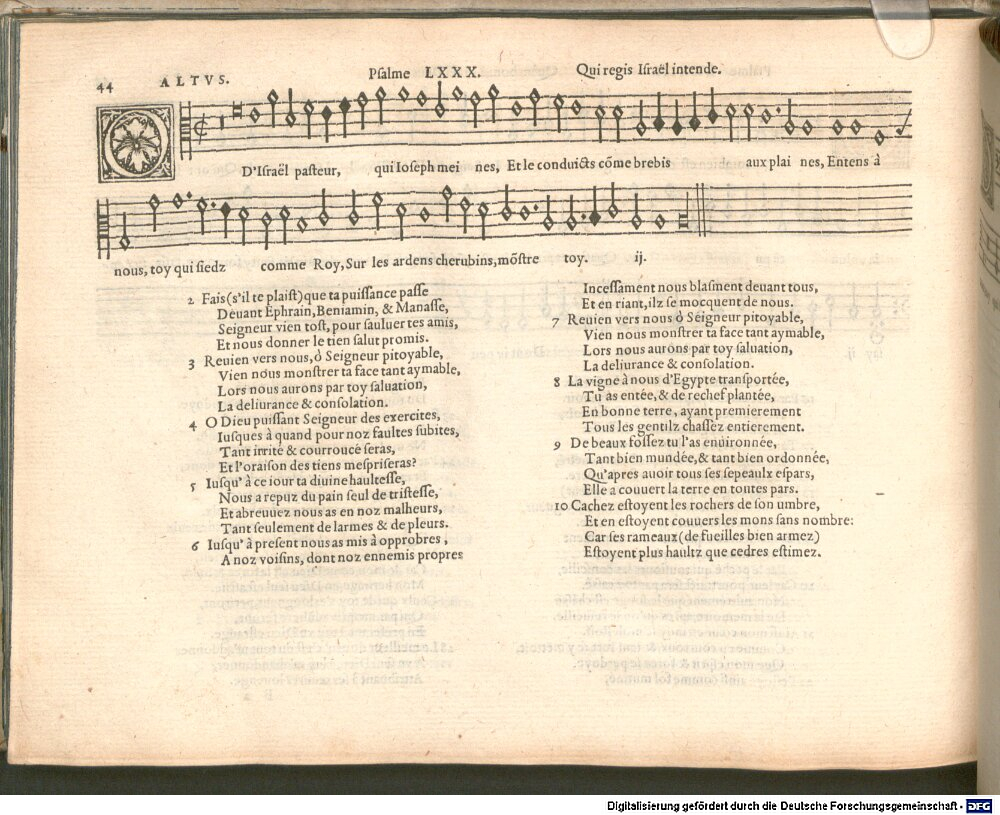 44 ALTVS. Pſalme LXXX. Qui regis Iſraël intende.
O D'Iſraël paſteur, qui Ioſeph mei nes, Et le conduicts cõme brebis aux plai nes, Entens à
nous, toy qui ſiedz comme Roy, Sur les ardens cherubins, mõſtre toy. ij.
2 Fais (s'il te plaiſt) que ta puiſſance paſſe
Deuant Ephrain, Beniamin, & Manaſſe,
Seigneur vien toſt, pour ſauluer tes amis,
Et nous donner le tien ſalut promis.
3 Reuien vers nous, ò Seigneur pitoyable,
Vien nous monſtrer ta face tant aymable,
Lors nous aurons par toy ſaluation,
La deliurance & conſolation.
4 O Dieu puiſſant Seigneur des exercites,
Iuſques à quand pour noz faultes ſubites,
Tant irrité & courroucé ſeras,
Et l'oraiſon des tiens meſpriſeras?
5 Iuſqu'à ce iour ta diuine haulteſſe,
Nous a repuz du pain ſeul de triſteſſe,
Et abreuuez nous as en noz malheurs,
Tant ſeulement de larmes & de pleurs.
6 Iuſqu'à preſent nous as mis à opprobres,
A noz voiſins, dont noz ennemis propres
Inceſſament nous blaſment deuant tous,
Et en riant, ilz ſe mocquent de nous.
7 Reuien vers nous ò Seigneur pitoyable,
Vien nous monſtrer ta face tant aymable,
Lors nous aurons par toy ſaluation,
La deliurance & conſolation.
8 La vigne à nous d'Egypte tranſportée,
Tu as entée, & de rechef plantée,
En bonne terre, ayant premierement
Tous les gentilz chaſſez entierement.
9 De beaux foſſez tu l'as enuironnée,
Tant bien mundée, & tant bien ordonnée,
Qu'apres auoir tous ſes ſepeaulx eſpars,
Elle a couuert la terre en toutes pars.
10 Cachez eſtoyent les rochers de ſon umbre,
Et en eſtoyent couuers les mons ſans nombre:
Car ſes rameaux (de fueilles bien armez)
Eſtoyent plus haultz que cedres eſtimez.
Digitalisierung gefördert durch die Deutsche Forschungsgemeinschaft - DFG